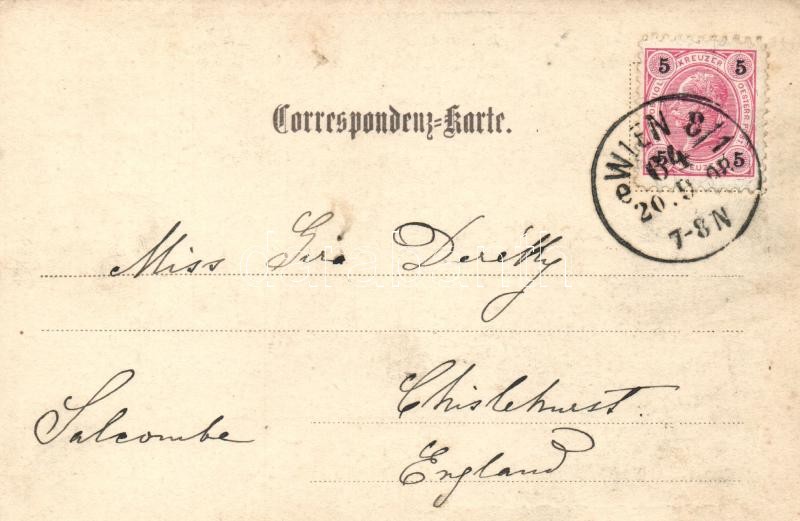 Correspondenz-Karte.
5 KREUZER 5
5 5
WIEN 8/1
64
20.9.98
7-8 N
Miss
Salcombe
Chislehurst
England